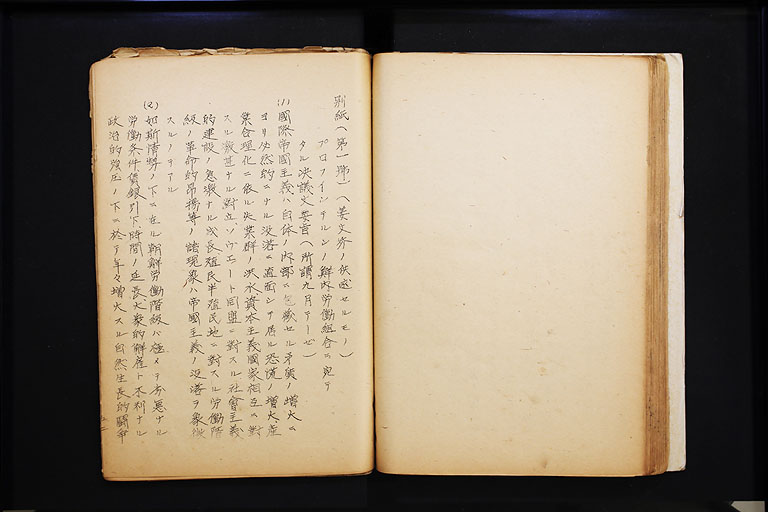 別紙(第一號)(姜文秀ノ供述セルモノ)
プロフインテルンノ鮮内労働組合ニ宛テ
タル決議文要旨(所謂九月テーゼ)
(1)國際帝國主義ハ自体ノ内部ニ包藏セル矛盾ノ増大ニ
ヨリ必然的ニナル没落ニ直面シテ居ル恐慌ノ増大、産
業合理化ニ依ル失業群ノ洪水資本主義國家相互ニ對
スル激甚ナル對立ソヴエート同盟ニ對スル社會主義
的建設ノ急激ナル成長殖民半殖民地ニ對スル労働階
級ノ革命的昂揚等ノ諸現象ハ帝國主義ノ没落ヲ象徴
スルノテアル
(2)如斯情勢ノ下ニ在ル朝鮮労働階級ハ極メテ劣悪ナル
労働条件賃銀引下時間ノ延長大衆的解雇ト不利ナル
政治的強圧ノ下ニ於テ年々増大スル自然生長的闘争